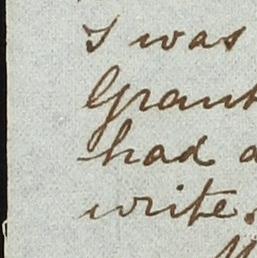 I was
Grant
had a
write.